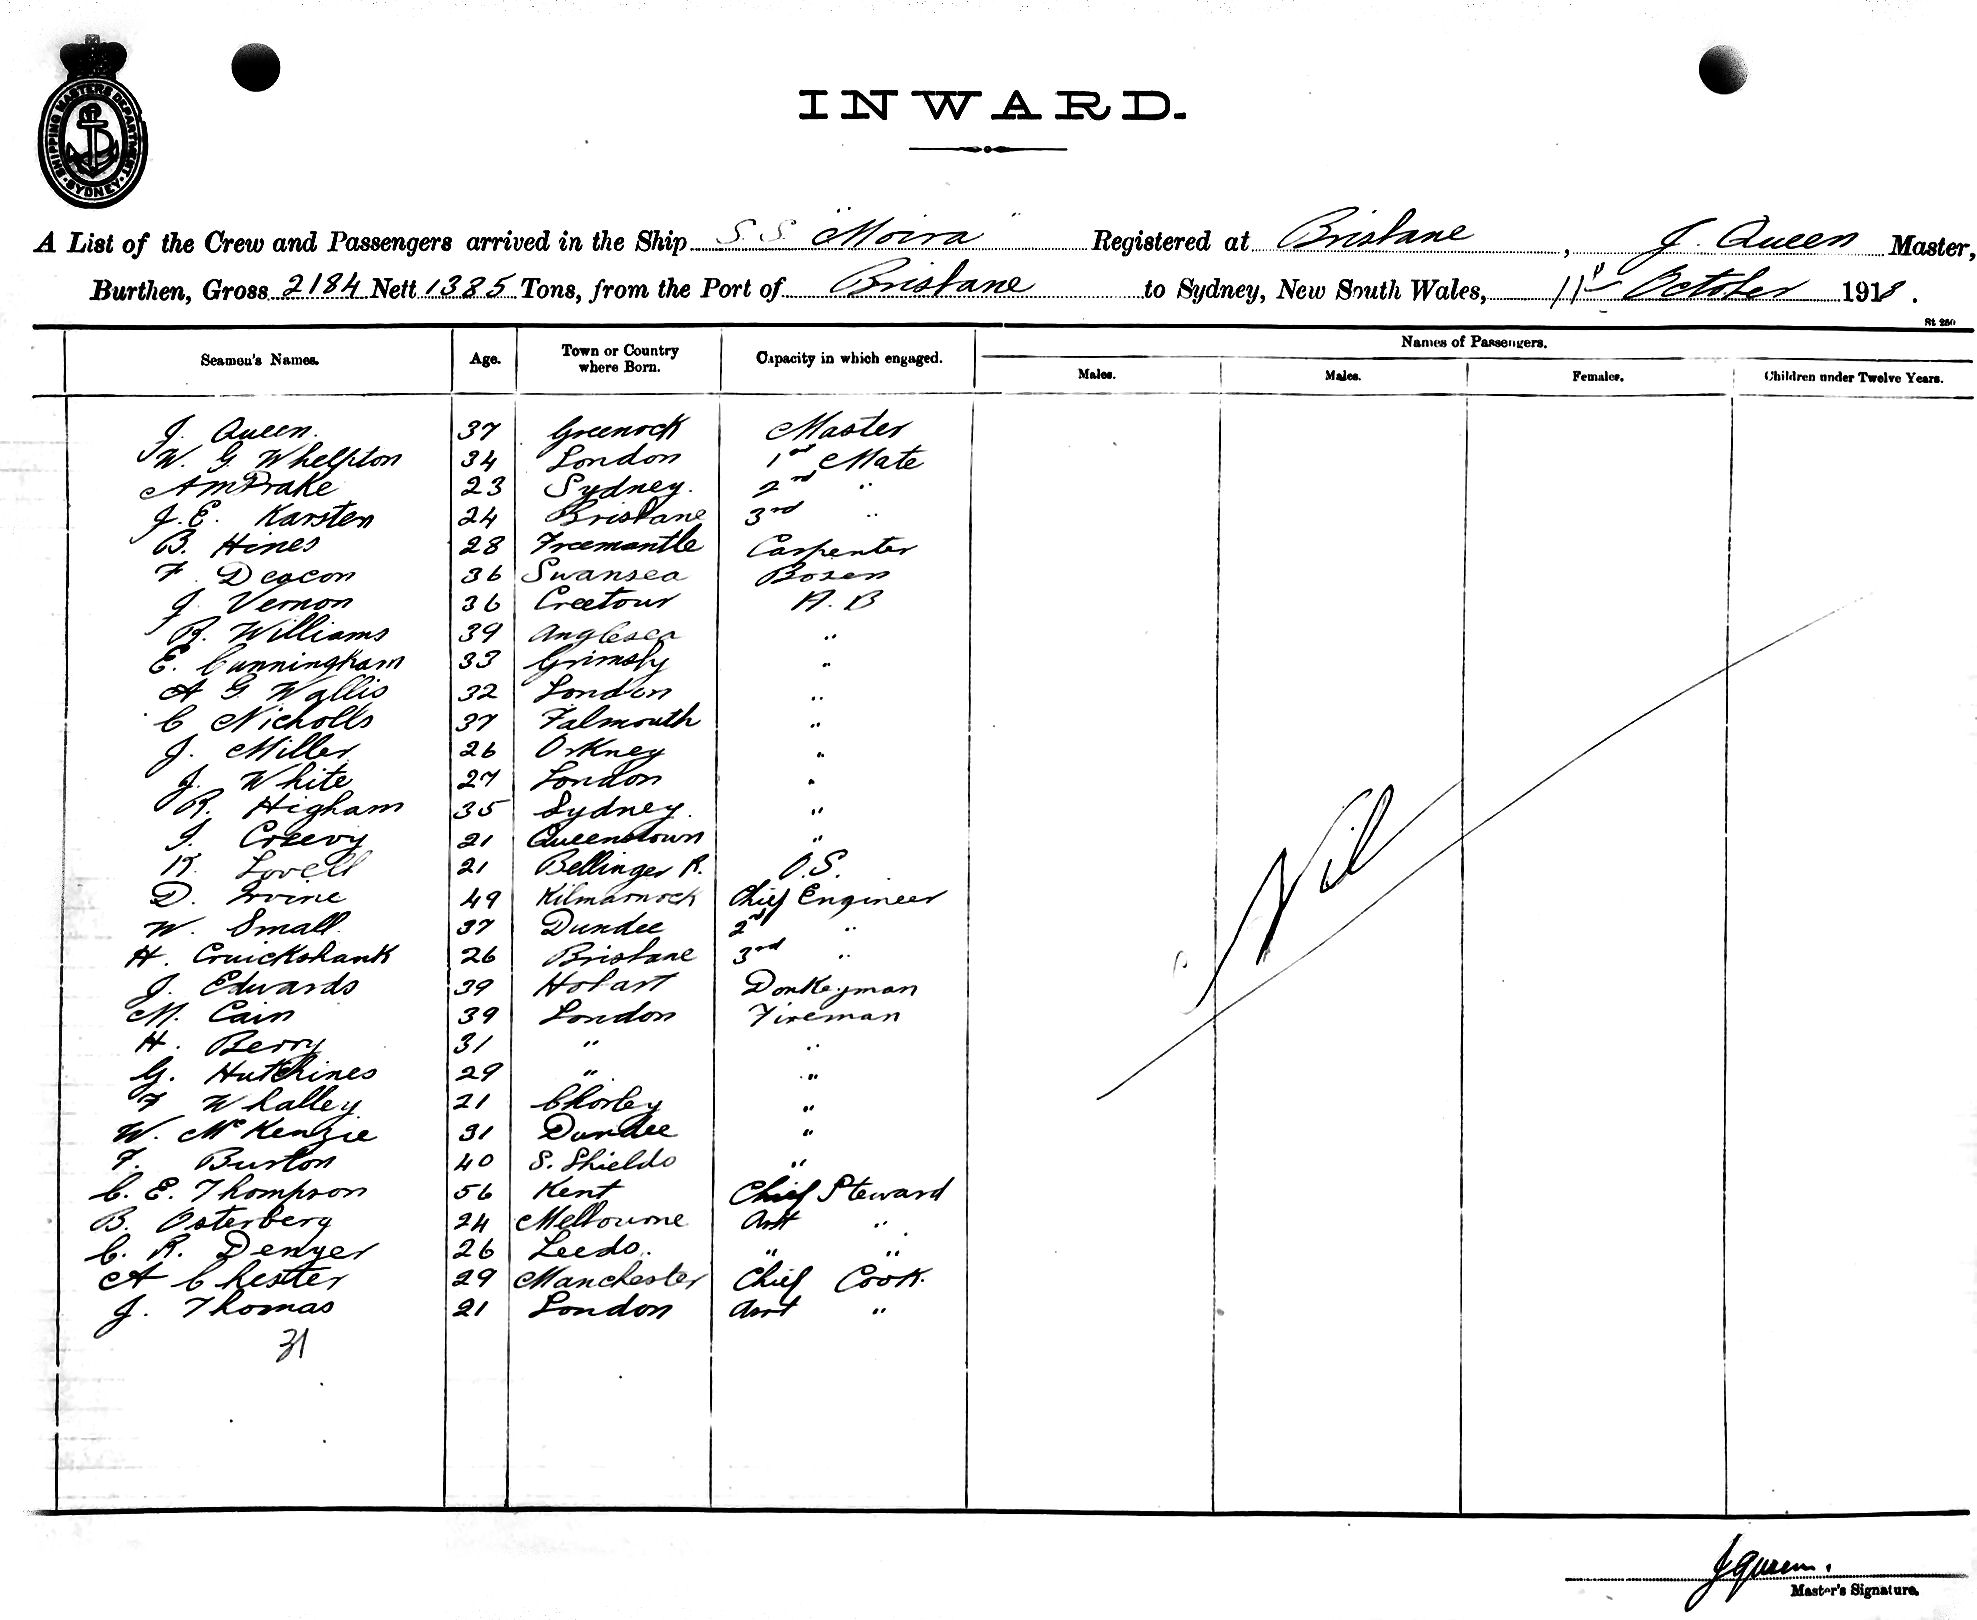 SHIPPING MASTERS DEPARTMENT
SYDNEY
INWARD.
A List of the Crew and Passengers arrived in the Ship S.S. "Moira" Registered at Brisbane, J. Queen Master,
Burthen, Gross 2184 Nett 1385 Tons, from the Port of Brisbane to Sydney, New South Wales, 11th October 1918.
St 250
Seamen's Names. Age. Town or Country where Born. Capacity in which engaged. Names of Passengers.
Males. Males. Females. Children under Twelve Years.
J. Queen. 37 Greenock Master
W. G. Whelpton 34 London 1st Mate
A M Drake 23 Sydney. 2nd "
J. E. Karsten 24 Brisbane 3rd "
B. Hines 28 Freemantle Carpenter
F. Deacon 36 Swansea Bosen
J. Vernon 36 Creetour A.B
R. Williams 39 Anglesea "
E. Cunningham 33 Grimsby "
A G Wallis 32 London "
C Nicholls 37 Falmouth "
J. Miller 26 Orkney "
J. White 27 London "
R. Higham 35 Sydney. "
21 Queenstown "
R. Lovell 21 Bellinger R. O.S.
D. Irvine 49 Kilmarnock Chief Engineer
W. Small. 37 Dundee 2nd "
H. Cruickshank 26 Brisbane 3rd "
J. Edwards 39 Hobart Donkeyman
M. Cain 39 London Fireman
H. Berry 31 " "
G. Hutchines 29 " "
F Whalley 21 Chorley "
W. McKenzie 31 Dundee "
F. Burton 40 S. Shields "
C. E. Thompson 56 Kent Chief Steward
B. Osterberg 24 Melbourne Asst "
C. R. Denyer 26 Leeds. " "
A Chester 29 Manchester Chief Cook.
J. Thomas 21 London Asst "
31
Nil
J Queen.
Master's Signature.